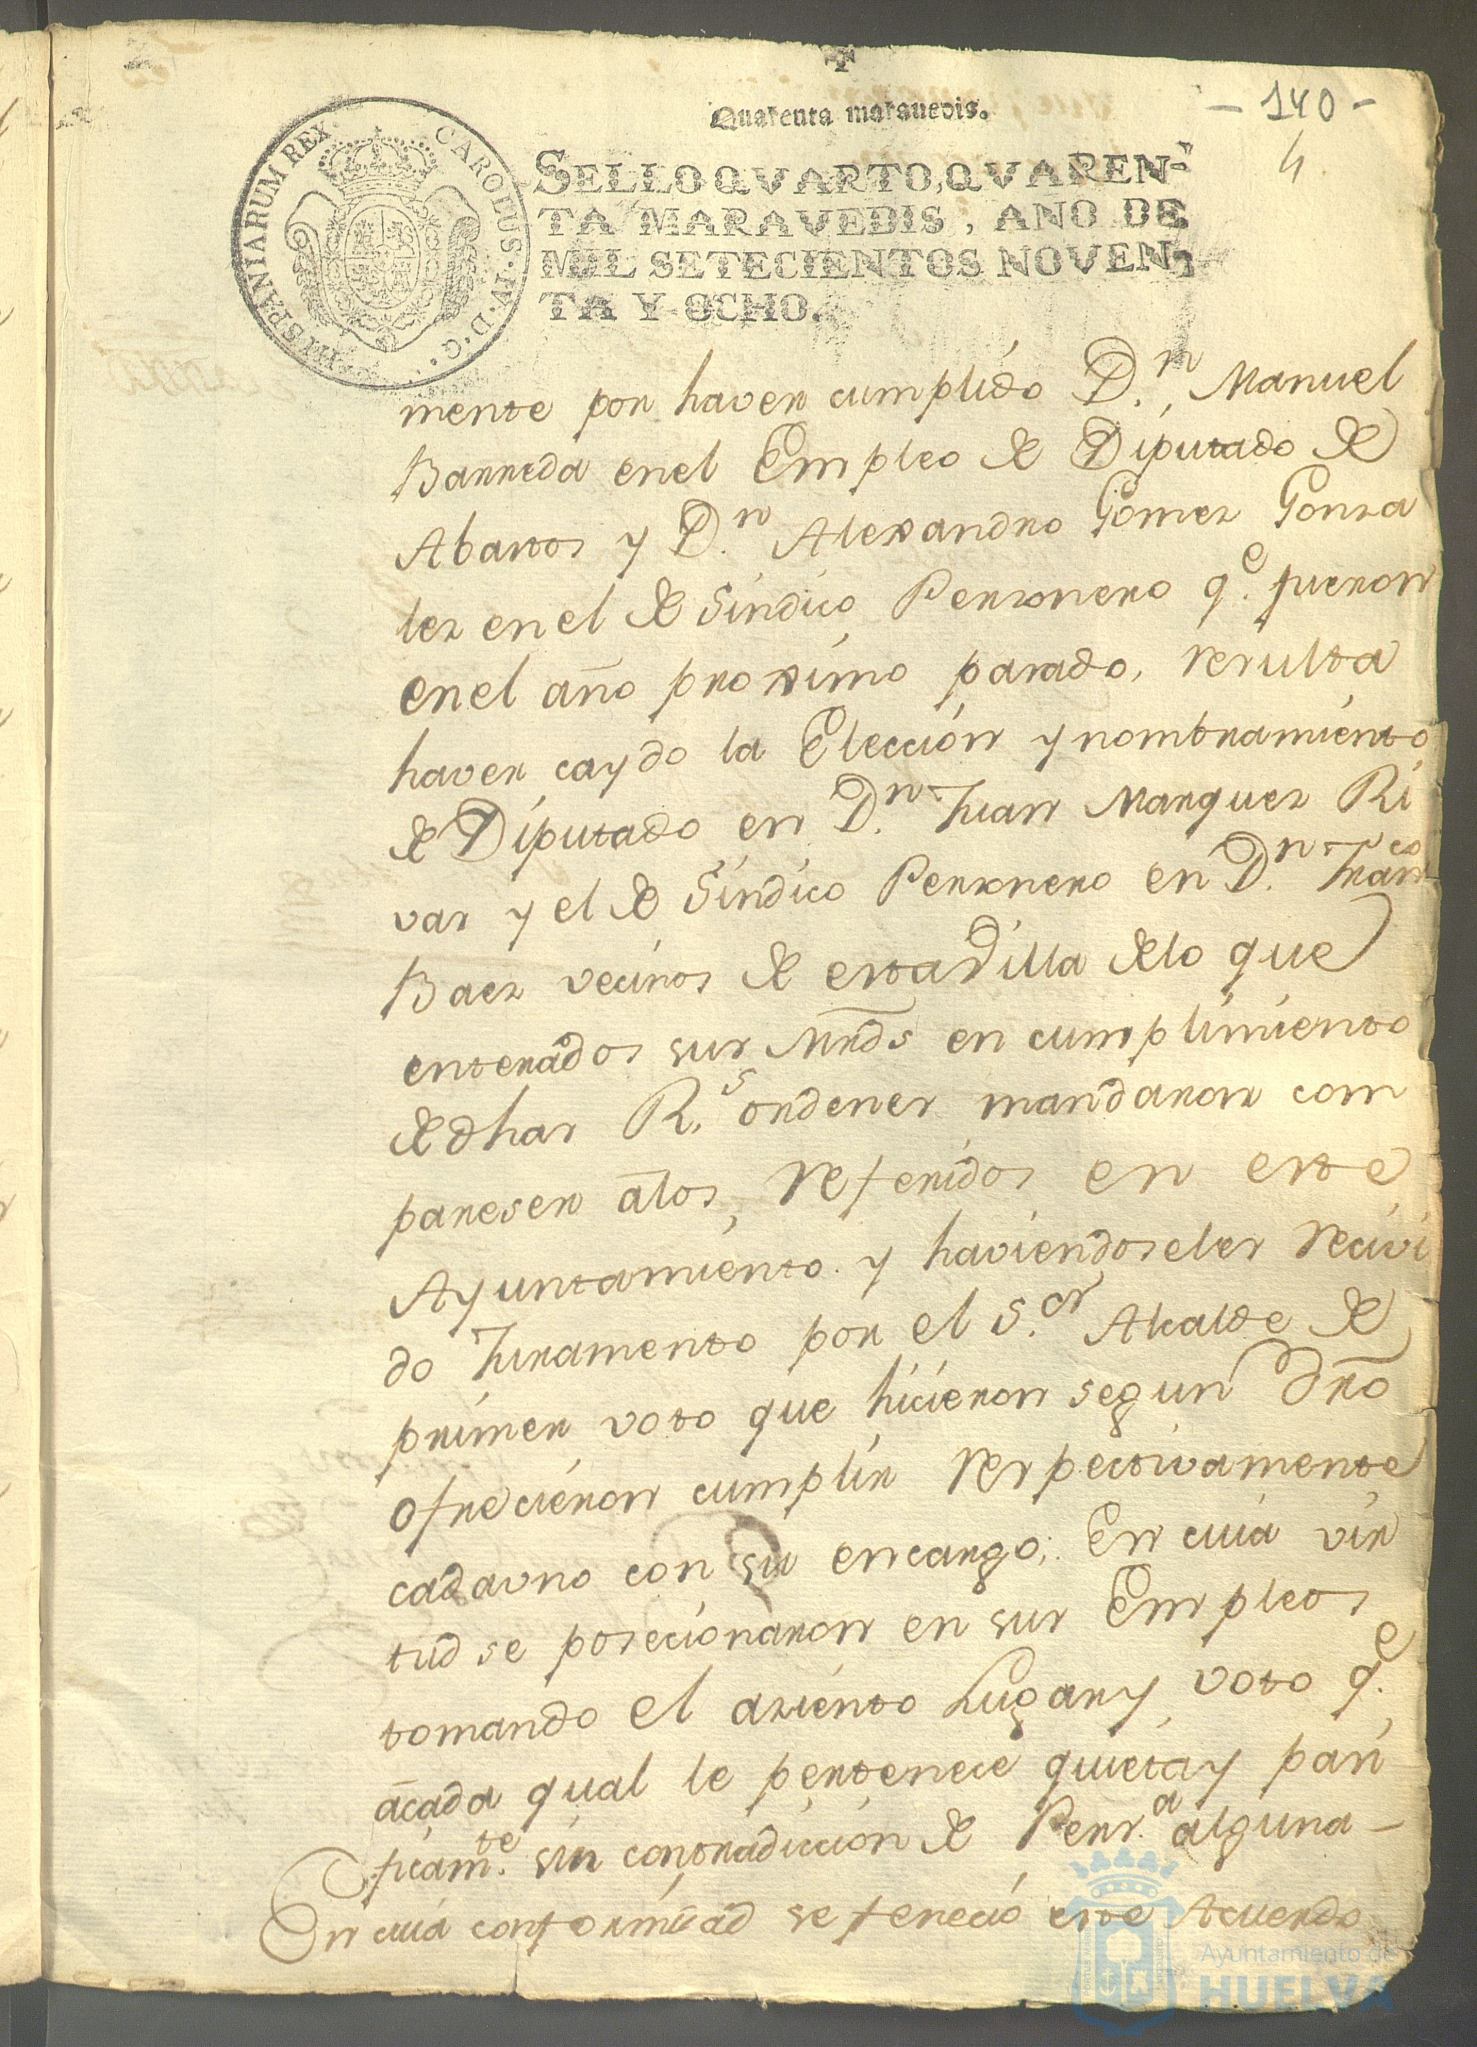 - 140 -
4
Quarenta maravedis.
CAROLUS·IV·D·G· HISPANIARUM REX·
SELLO QVARTO, QVAREN-
TA MARAVEDIS, AÑO DE
MIL SETECIENTOS NOVEN-
TA Y OCHO.
mente por haver cumplido D.n Manuel
Barreda en el Empleo de Diputado de
Abastos y D.n Alexandro Gomez Gonza
les en el de Sindico Personero q.e fueron
en el año proximo pasado, resulta
haver caydo la Elección y nombramiento
de Diputado en D.n Juan Marquez Ri
vas y el de Sindico Personero en D.n Fran.co
Baez vecinos de esta Villa de lo que
enterados sus Mrds en cumplimiento
de dhas R.s ordenes mandaron com
pareser a los referidos en este
Ayuntamiento y haviendoseles recivi
do Juramento por el S.or Alcalde de
primer voto que hicieron segun dro
ofrecieron cumplir respectivamente
cada uno con su encargo; En cuia vir
tud se posecionaron en sus Empleos
tomando el asiento Lugar y voto q.e
a cada qual le pertenece quieta y pasi
ficam.te sin contradiccion de Pers.a alguna -
En cuia conformidad se feneció este Acuerdo
Ayuntamiento de
HUELVA